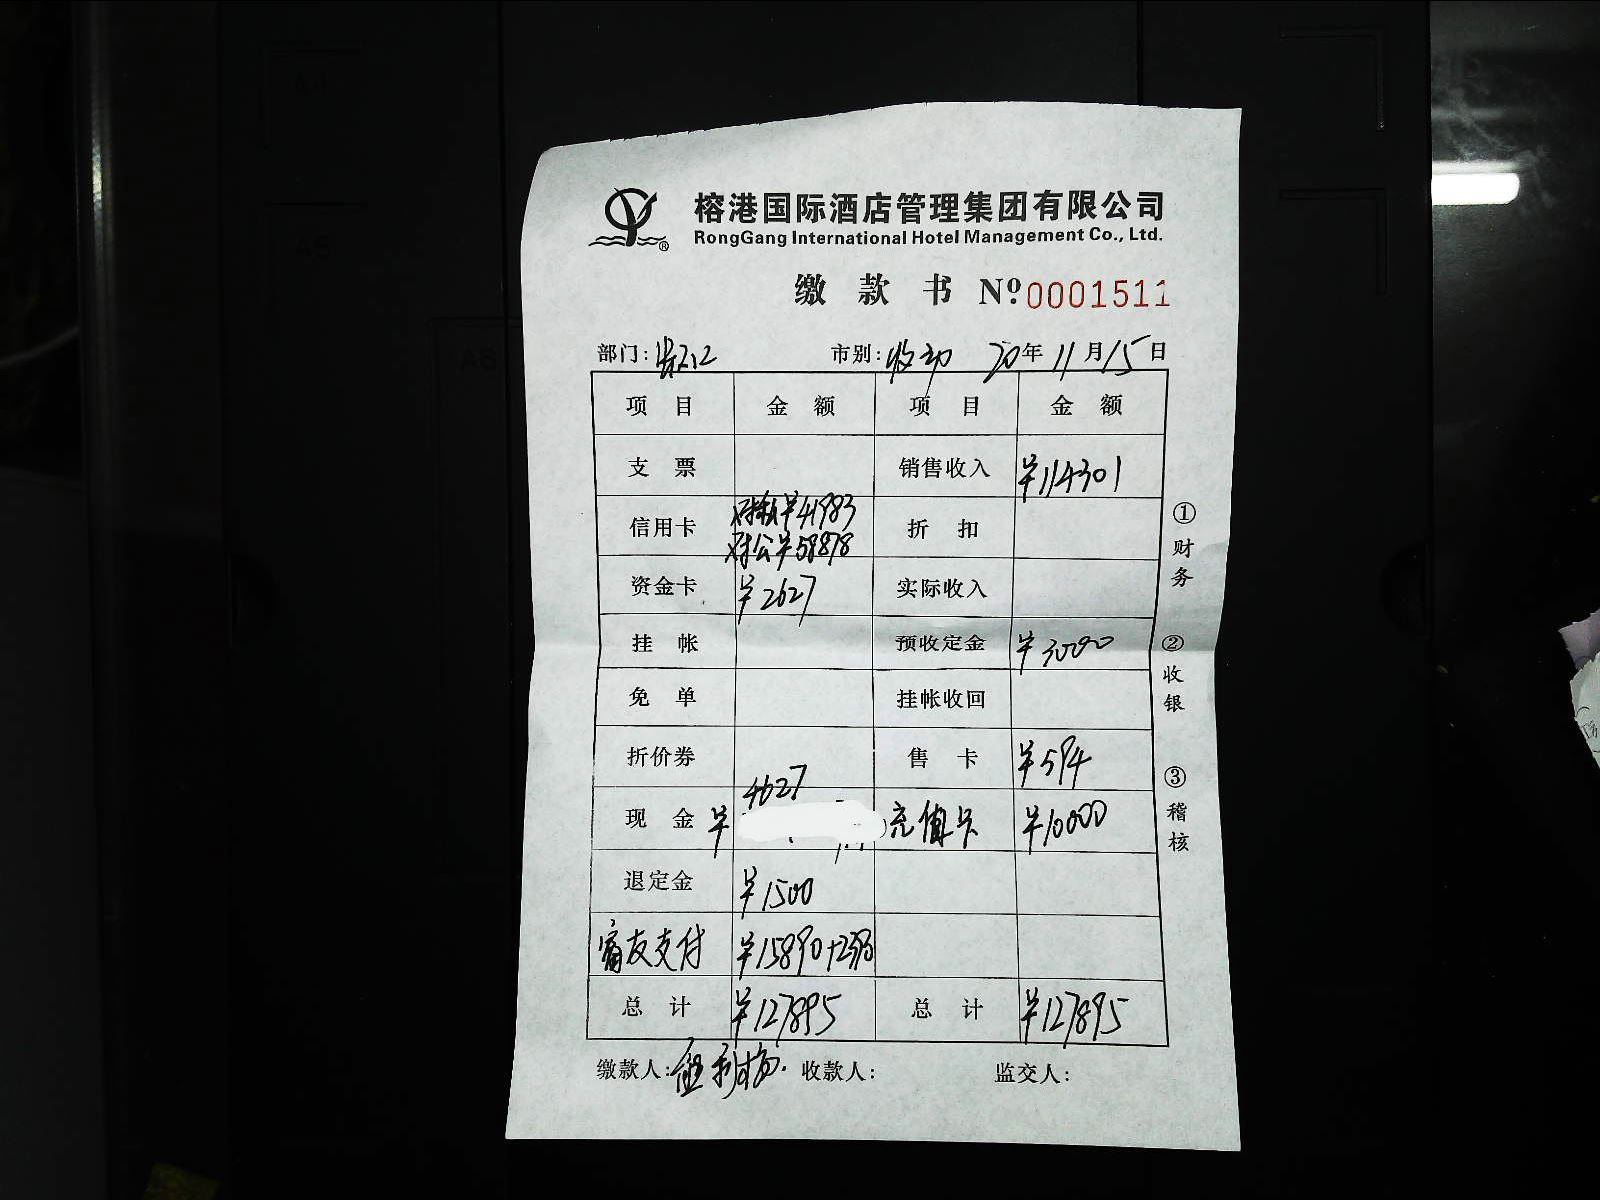 榕港国际酒店管理集团有限公司
RongGang International Hotel Management Co., Ltd.
缴款书 Nº 0001511
部门: 市别: 20年11月15日
项目 金额 项目 金额
支票 销售收入 ¥114301
信用卡 ¥41983 折扣
对公¥58878
资金卡 ¥2627 实际收入
挂帐 预收定金 ¥3000
免单 挂帐收回
折价券 售卡 ¥594
现金 ¥4627 充值卡 ¥10000
退定金 ¥1500
富友支付 ¥15890+2390
总计 ¥127895 总计 ¥127895
缴款人: 收款人: 监交人:
①财务
②收银
③稽核